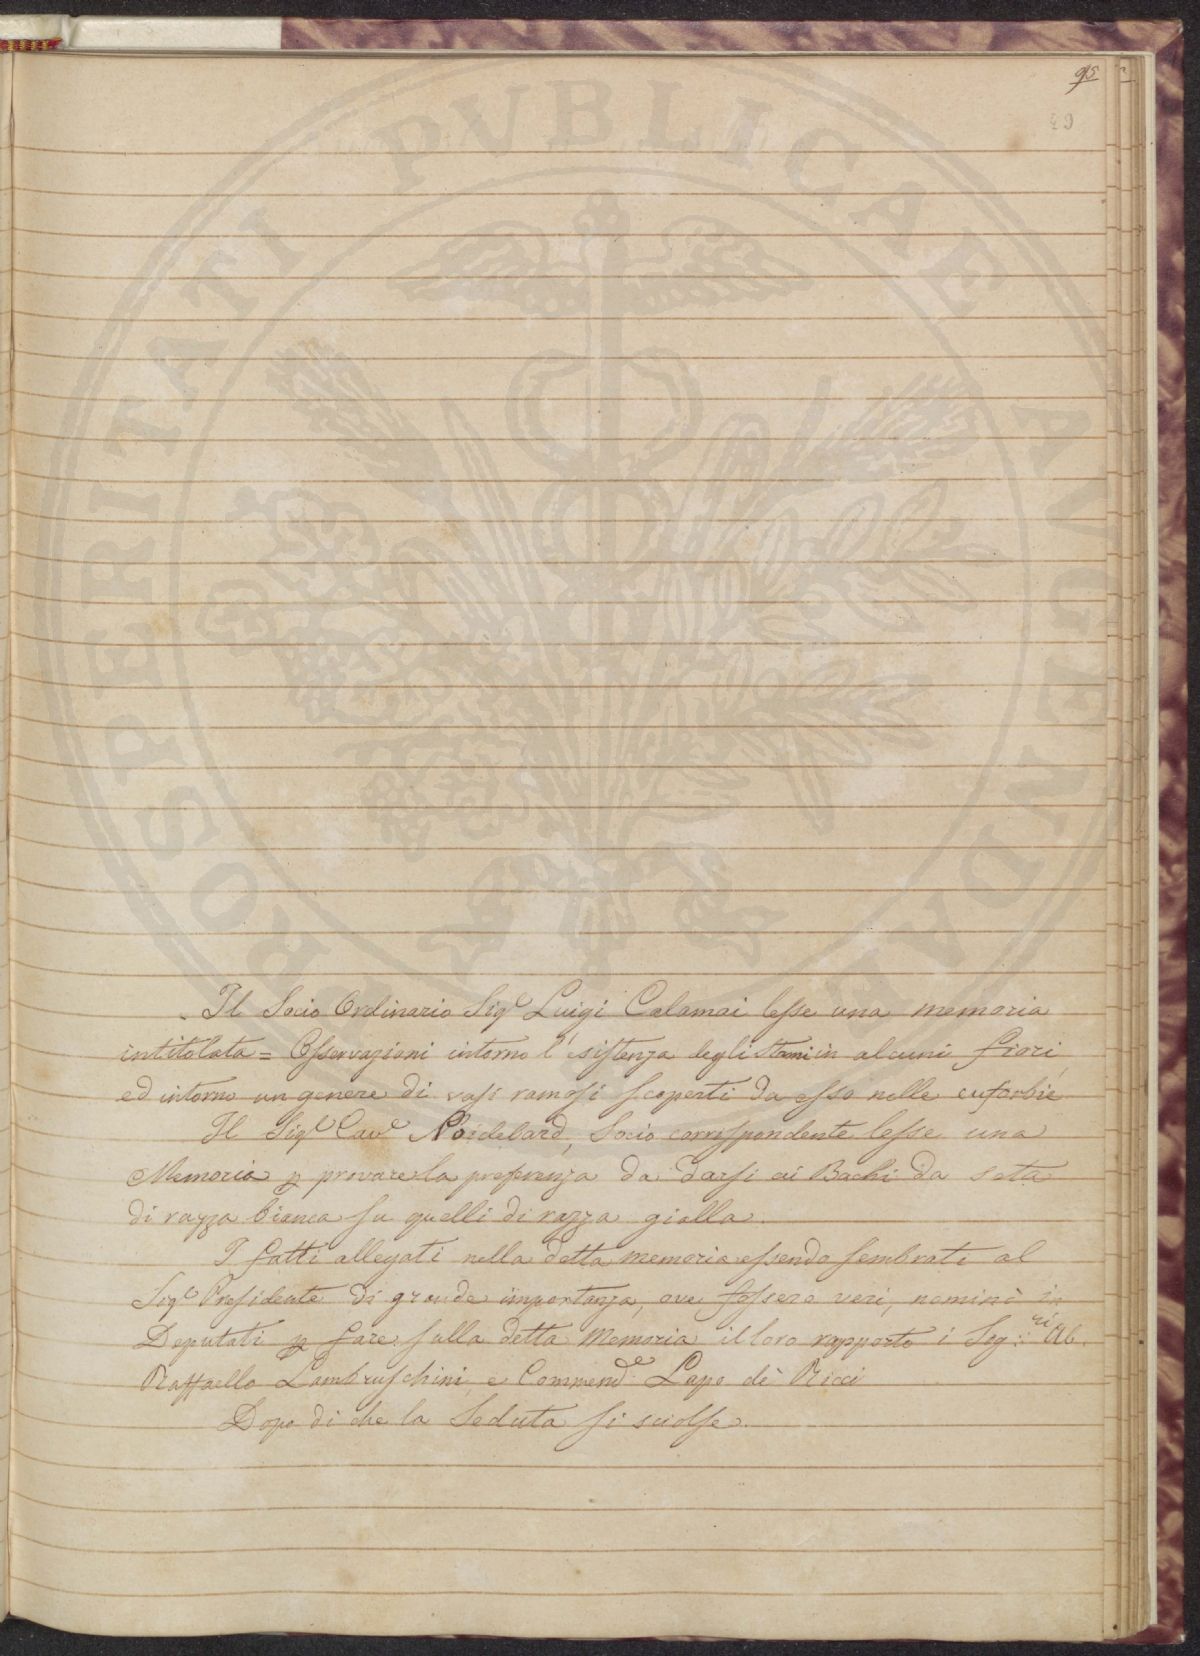 95
49
PROSPERITATI PVBLICAE AVGENDAE
Il Socio Ordinario Sigr Luigi Calamai lesse una memoria
intitolata = Osservazioni intorno l'esistenza degli Stami in alcuni fiori,
ed intorno un genere di vasi ramosi scoperti da esso nelle euforbie
Il Sigr Cavr Poidebard, Socio corrispondente lesse una
Memoria p provare la preferenza da darsi ai Bachi da seta
di razza bianca su quelli di razza gialla.
I fatti allegati nella detta memoria essendo sembrati al
Sigr Presidente di grande importanza, ove fossero veri, nominò in
Deputati p fare sulla detta Memoria il loro rapporto i Sigri Ab.
Raffaello Lambruschini e Commende Lapo de' Ricci
Dopo di che la Seduta si sciolse.